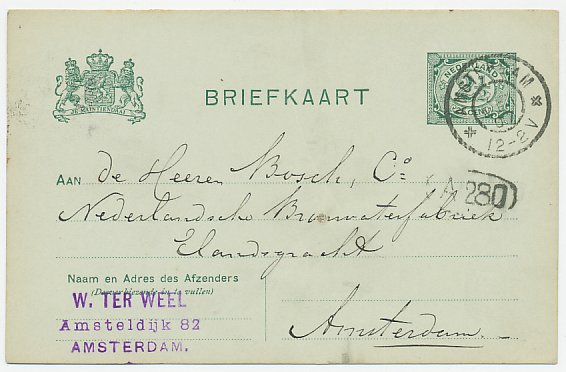 JE MAINTIENDRAI
BRIEFKAART
NEDERLAND
CENT
AMSTERDAM
12-2V
AAN de Heeren Bosch, Co
A 280
Nederlandsche Bronwaterfabriek
Elandsgracht
Naam en Adres des Afzenders
(Desverkiezende in te vullen)
W. TER WEEL
Amsteldijk 82
AMSTERDAM.
Amsterdam.